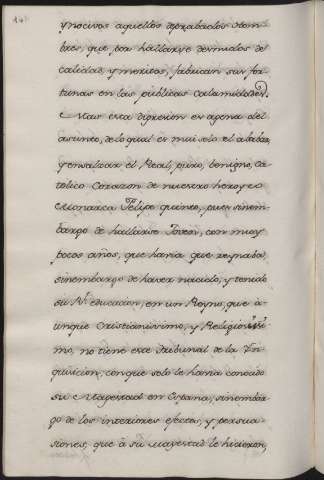 y nocivos aquellos deprabados hom-
bres, que por hallarse desnudos de
calidad, y meritos, fabrican sus for-
tunas en las publicas calamidades.
Mas esta digresion es agena del
asunto, de lo qual es mui solo el alabar,
y ensalzar el Real, puro, benigno, Ca-
tolico Corazon de nuestro heroyco
Monarca Felipe quinto, pues sinem-
bargo de hallarse Joven, con muy
pocos años, que havia que reynaba,
sinembargo de haver nacido, y tenido
su Rl. educacion, en un Reyno, que a-
unque Cristianissimo, y Religiosissi-
mo, no tiene este Tribunal de la In-
quisicion, con que solo le havia conocido
su Magestad en España, sinembar-
go de los interiores efectos, y persua-
siones, que à su Magestad le hicieron,